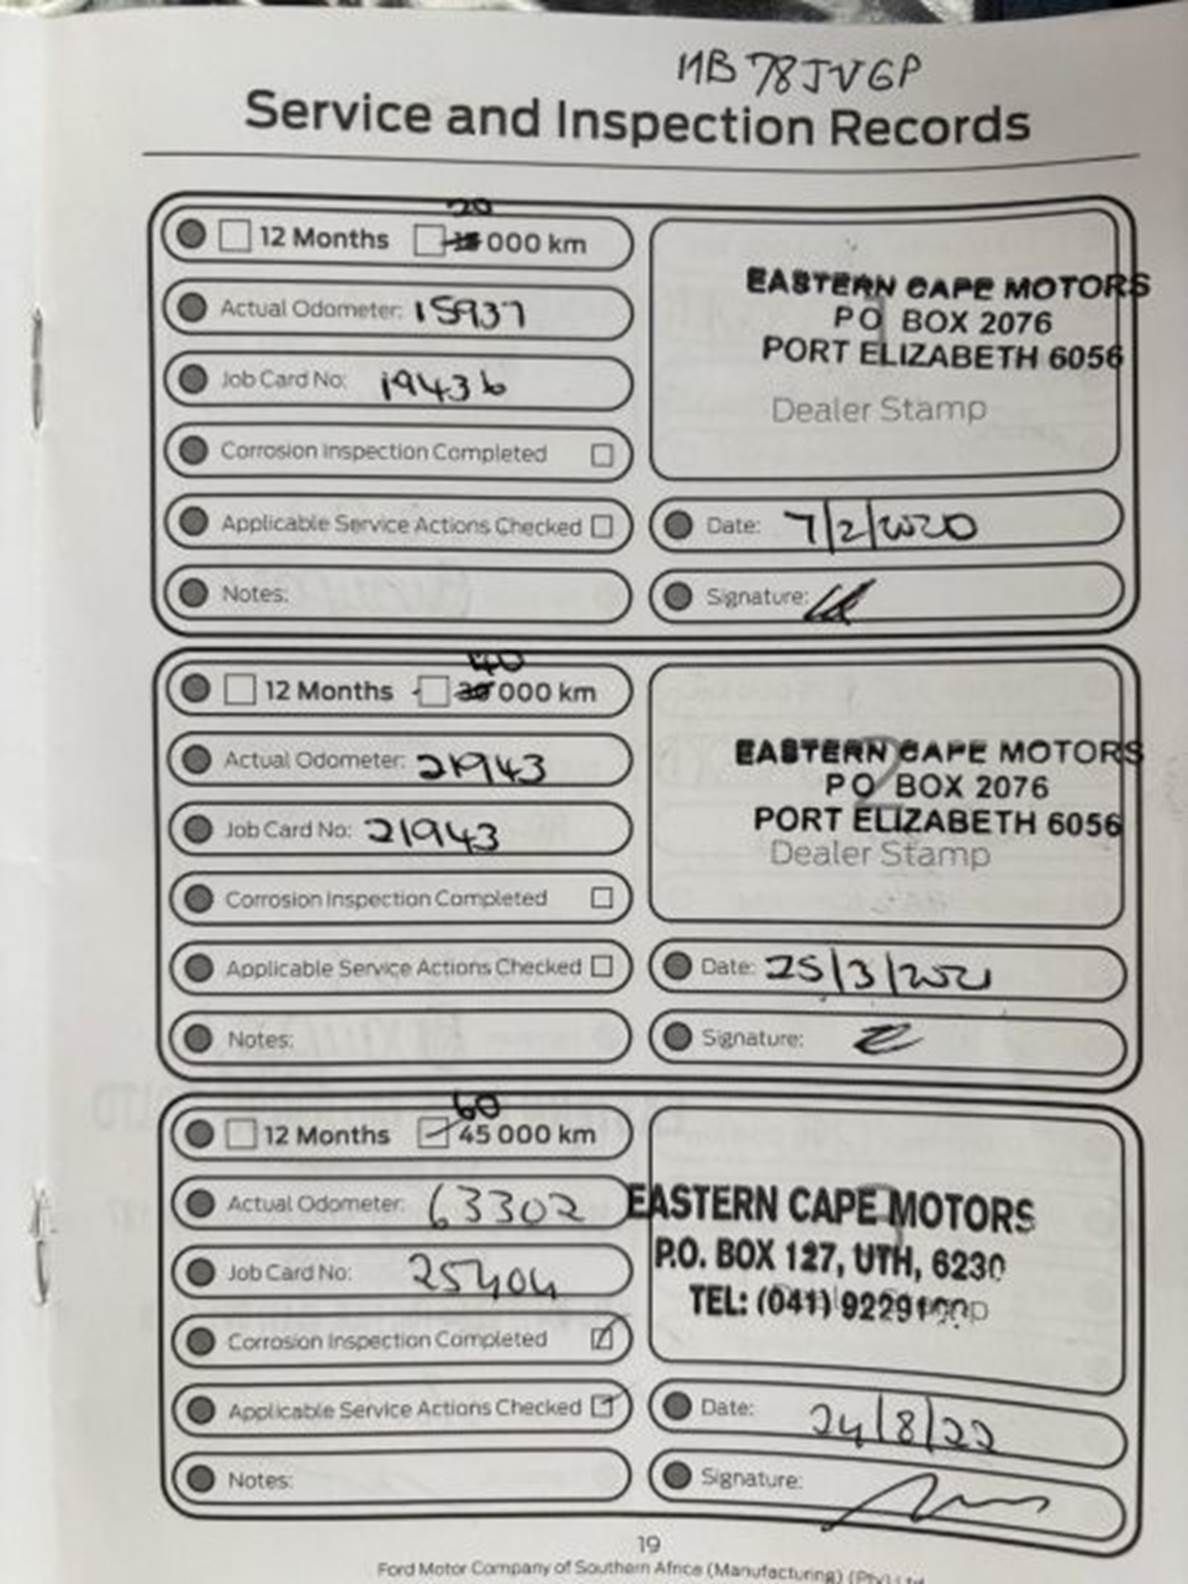 MB78JVGP
Service and Inspection Records
12 Months 20 000 km
Actual Odometer: 15937
Job Card No: 19436
Corrosion Inspection Completed
Applicable Service Actions Checked
Notes:
EASTERN CAPE MOTORS
PO BOX 2076
PORT ELIZABETH 6056
Dealer Stamp
Date: 7/2/2020
Signature:
12 Months 40 000 km
Actual Odometer: 21943
Job Card No: 21943
Corrosion Inspection Completed
Applicable Service Actions Checked
Notes:
EASTERN CAPE MOTORS
PO BOX 2076
PORT ELIZABETH 6056
Dealer Stamp
Date: 25/3/2021
Signature:
60
12 Months 45 000 km
Actual Odometer: 63302
Job Card No: 25404
Corrosion Inspection Completed
Applicable Service Actions Checked
Notes:
EASTERN CAPE MOTORS
P.O. BOX 127, UTH, 6230
TEL: (041)
Date: 24/8/22
Signature:
19
Ford Motor Company of Southern Africa (Manufacturing) (Pty) Ltd